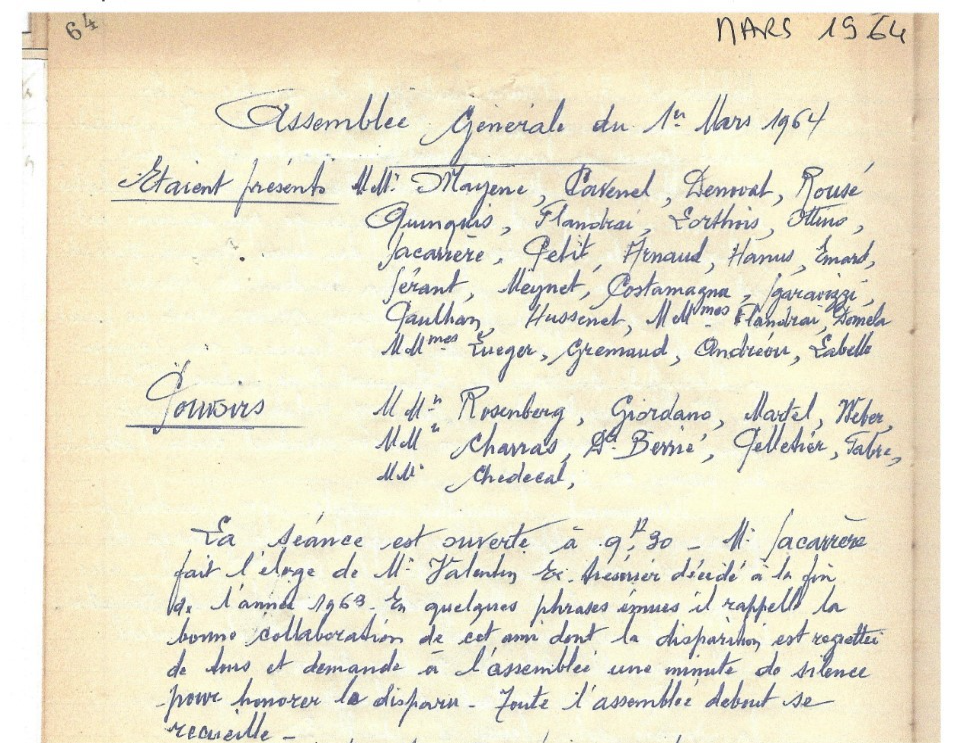 64
MARS 1964
Assemblée Générale du 1er Mars 1964
Etaient présents M.M. Mayene, Cavenel, Denoval, Rousé
Quinquis, Flandrai, Lorthois, Ottino,
Jacarrère, Petit, Arnaud, Hamus, Emard,
Sérant, Meynet, Costamagna, Sgaravizzi,
Paulhan, Hussenet, M.M.mes Flandrai, Domela
M.M.mes Lueger, Grémaud, Andréou, Labelle
Pouvoirs M.M. Rosenberg, Giordano, Martel, Weber,
M.M. Charras, Dr Berrié, Pelletier, Fabre,
M.M. Chedecal,
La séance est ouverte à 9h,30 - M. Jacarrère
fait l'éloge de M. Valentin Ex. trésorier décédé à la fin
de l'année 1963. En quelques phrases émues il rappelle la
bonne collaboration de cet ami dont la disparition est regrettée
de tous et demande à l'assemblée une minute de silence
pour honorer le disparu - Toute l'assemblée debout se
recueille -